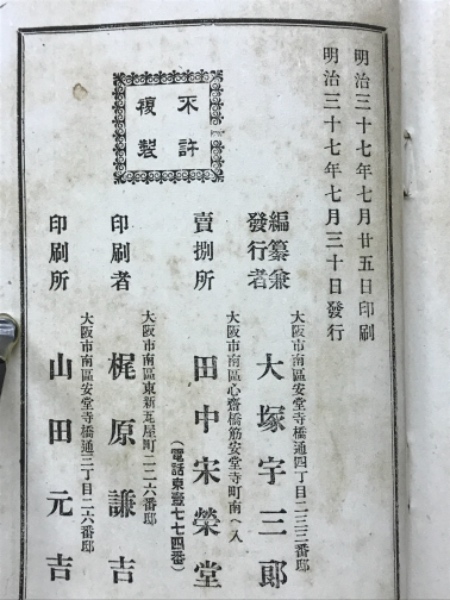 明治三十七年七月廿五日印刷
明治三十七年七月三十日發行
不許
複製
編纂兼
發行者
大阪市南區安堂寺橋通四丁目二三三番邸
大塚宇三郎
賣捌所
大阪市南區心齋橋筋安堂寺町南ヘ入
田中宋榮堂
(電話東壹七七四番)
印刷者
大阪市南區東新瓦屋町一二六番邸
梶原謙吉
印刷所
大阪市南區安堂寺橋通三丁目二六番邸
山田元吉